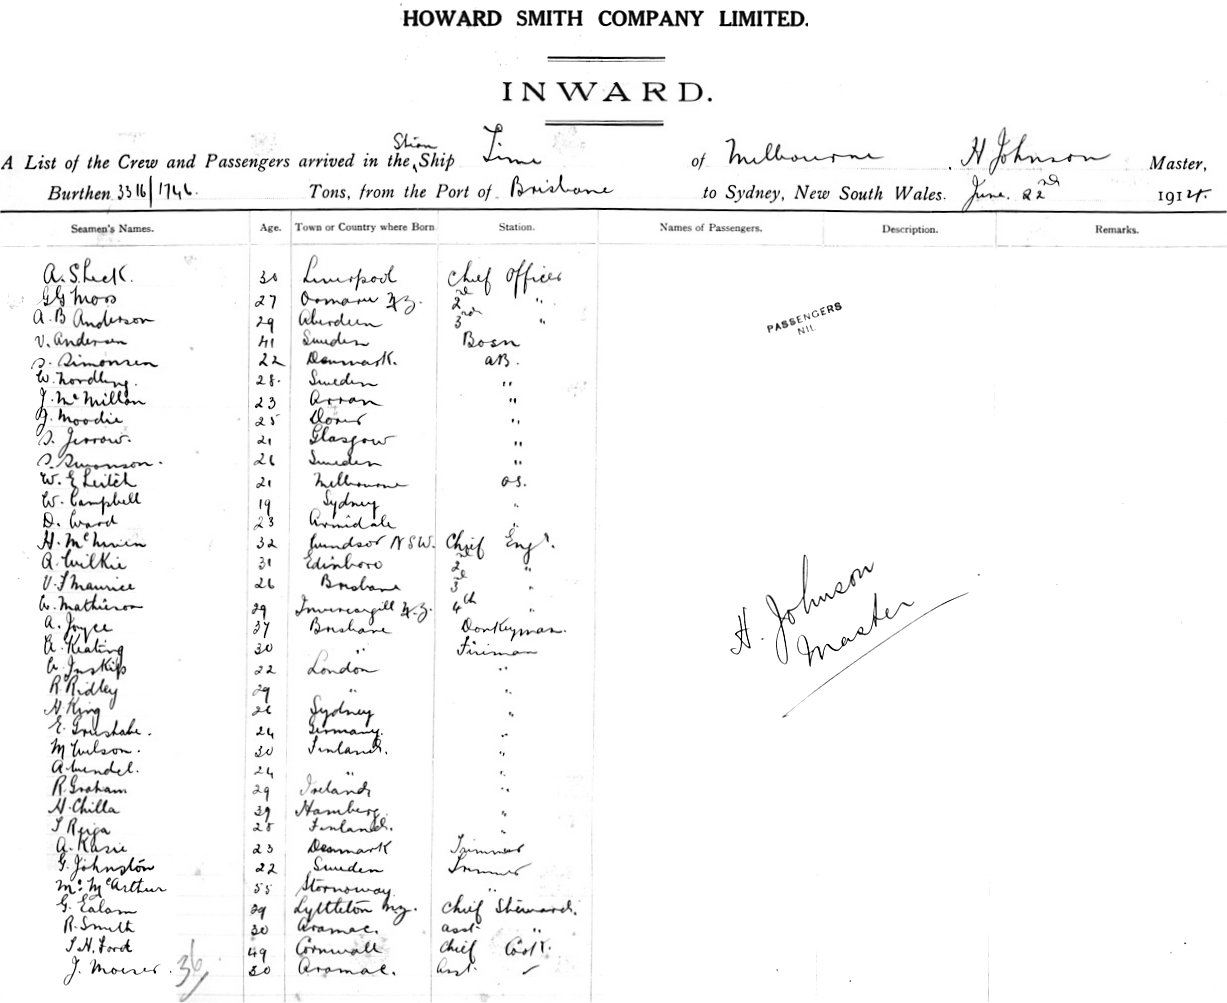 HOWARD SMITH COMPANY LIMITED.
INWARD.
A List of the Crew and Passengers arrived in the Steam Ship Time of Melbourne, H Johnson Master,
Burthen 3316/1746 Tons, from the Port of Brisbane to Sydney, New South Wales. June 22nd 1914.
Seamen's Names. Age. Town or Country where Born. Station. Names of Passengers. Description. Remarks.
30 Liverpool Chief Officer
G G Moss 27 Oamaru N.Z. 2nd "
A. B Anderson 29 Aberdeen 3rd "
V. Andersen 41 Sweden Bosn
S. Simonsen 22 Denmark. AB.
W. Nordling. 28. Sweden "
J. McMillan 23 Arran "
J. Moodie 25 Dover "
S. Jerrow. 21 Glasgow "
S. Swanson. 26 Sweden "
W. E Leitch 21 Melbourne O.S.
W. Campbell 19 Sydney "
D. Ward 23 Armidale "
H. 32 Windsor NSW. Chief Engr.
A. Wilkie 31 Edinboro 2nd "
V. J Maurice 26 Brisbane 3rd "
W. Mathieson 29 Invercargill N.Z. 4th "
A. Joyce 37 Brisbane Donkeyman.
E. Keating 30 " Fireman
C. Inskip 22 London "
R Ridley 29 " "
H King 26 Sydney "
E. 24 Germany. "
M Wilson. 30 Finland. "
A Wendel. 24 " "
R. Graham 29 Ireland "
H. Chilla 39 Hamberg "
28 Finland. "
A. 23 Denmark Trimmer
G. Johnston 22 Sweden Trimmer
M. McArthur 55 Stornoway "
G. Ealam 29 Lyttleton N.Z. Chief Steward.
R. Smith 30 Aramac. Asst "
T. H. Ford 49 Cornwall Chief Cook.
J. 30 Aramac. Asst.
36
PASSENGERS
NIL
H. Johnson
Master